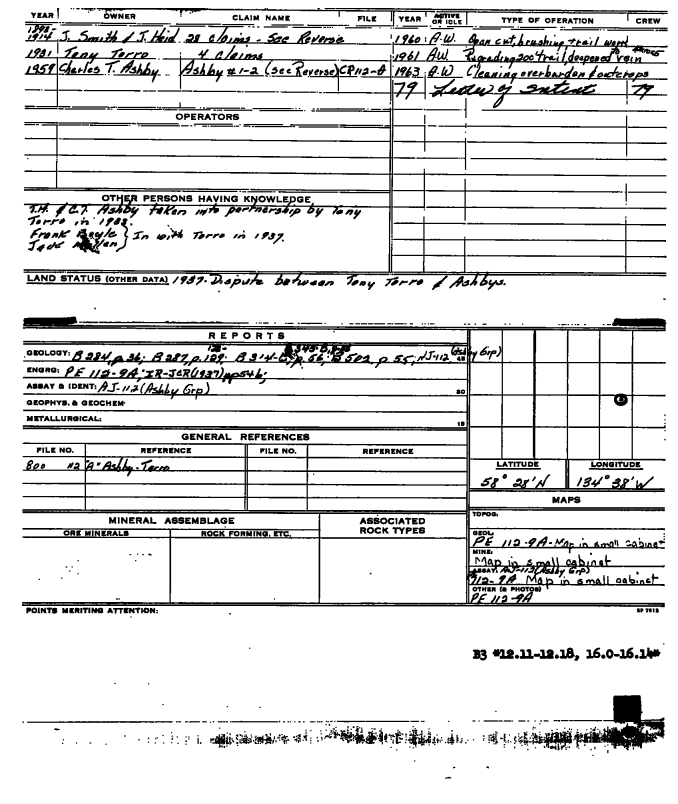 YEAR OWNER CLAIM NAME FILE YEAR ACTIVE OR IDLE TYPE OF OPERATION CREW
1914 J. Smith & J. Heid 28 claims - See Reverse 1960 A.W. Open cut, brushing, trail work
1931 Tony Torro 4 claims 1961 AW Regrading 200' trail, deepened vein
1959 Charles T. Ashby Ashby #1-2 (See Reverse) CR112-8 1963 A.W. Cleaning overburden & outcrops
79 Letter of Intent 79
OPERATORS
OTHER PERSONS HAVING KNOWLEDGE
T.H. & C.T. Ashby taken into partnership by Tony
Torro in
Frank } In with Torro in 1937.
Jack
LAND STATUS (OTHER DATA) 1937 - Dispute between Tony Torro & Ashbys.
REPORTS
GEOLOGY: B 284, p. 36; B 287, p. 129; B 314-C, p. 56; B 502, p 55; NJ-112 (Ashby Grp)
ENGRG: PE 112-9A; IR-JCR(1937) pp546;
ASSAY & IDENT: AJ-112 (Ashby Grp) 30
GEOPHYS. & GEOCHEM:
METALLURGICAL: 15
GENERAL REFERENCES
FILE NO. REFERENCE FILE NO. REFERENCE
800 112 "A" Ashby-Torro
LATITUDE LONGITUDE
58° 28' N 134° 38' W
MAPS
MINERAL ASSEMBLAGE ASSOCIATED ROCK TYPES
ORE MINERALS ROCK FORMING, ETC.
TOPOG:
GEOL:
PE 112-9A - Map in small cabinet
MINE:
Map in small cabinet
ASSAY: AJ-112 (Ashby Grp)
112-9A Map in small cabinet
OTHER (& PHOTOS)
PE 112-9A
POINTS MERITING ATTENTION:
B3 #12.11-12.18, 16.0-16.14#